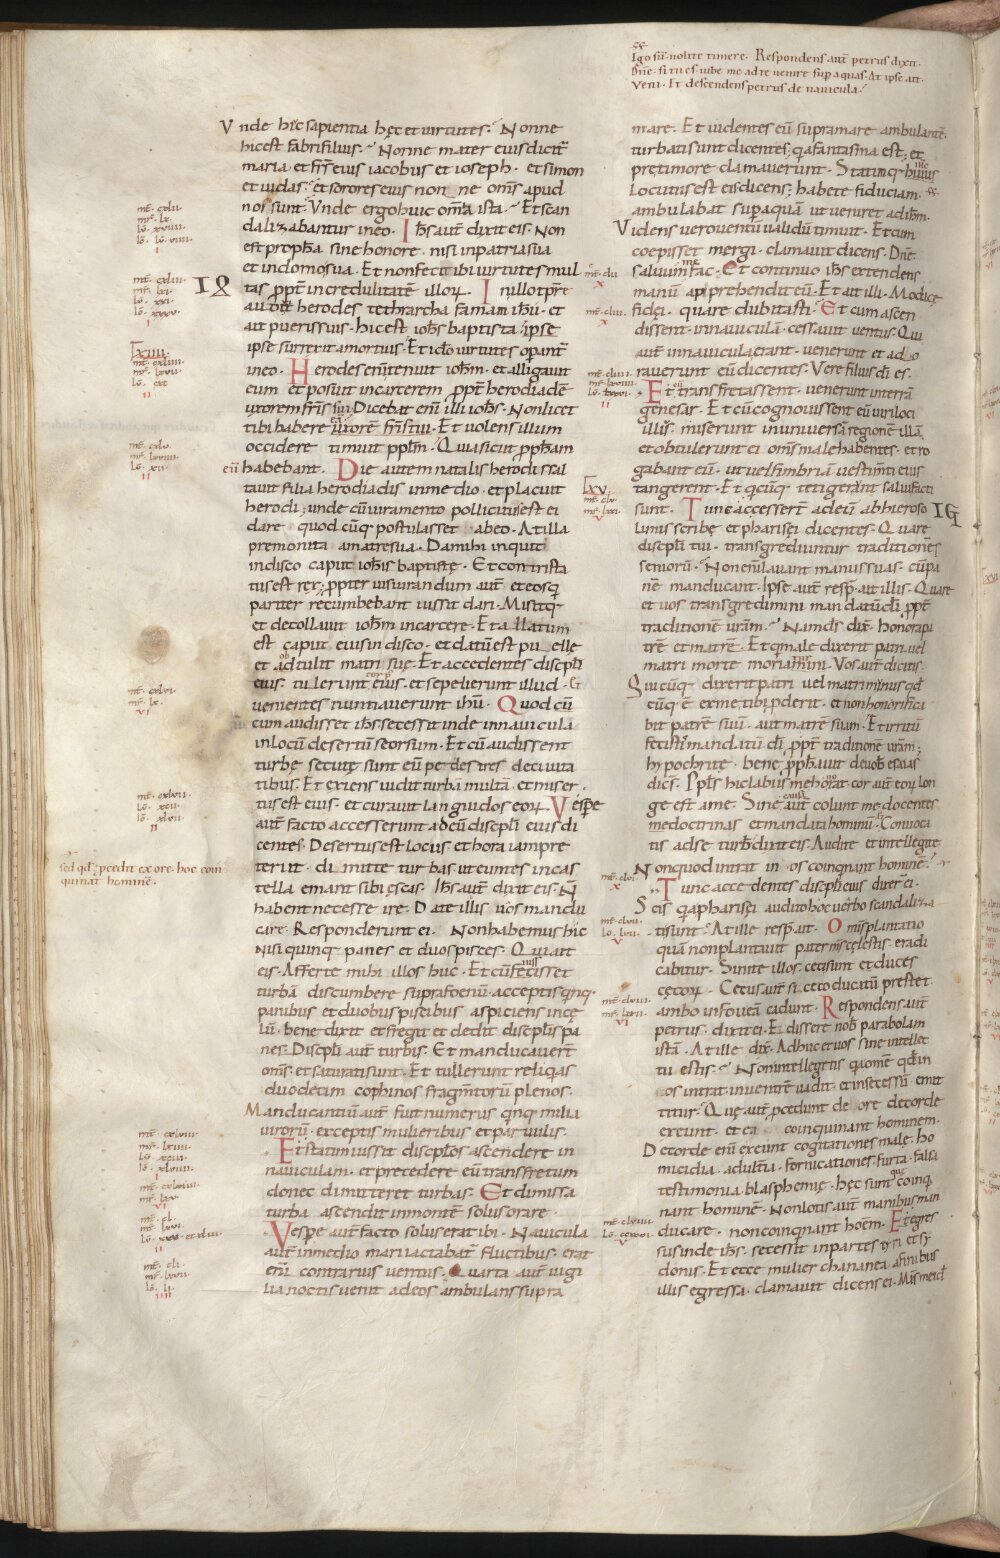 Ego sū nolite timere. Respondens aut̄ petrus dixit.
Dn̄e si tu es iube me ad te venire sup aquas. At ipse ait
Veni. Et descendens petrus de navicula
Unde hic sapientia hęc et virtutes. Nonne
hic est fabri filius. Nonne mater eius dicit̄
maria et fr̄s eius iacobus et ioseph. et simon
et iudas. et sorores eius nonne om̄s apud
nos sunt. Unde ergo huic om̄ia ista. Et scan
dalizabantur in eo. Ih̄s aut̄ dixit eis. Non
est prophā sine honore. nisi in patria sua
et in domo sua. Et non fecit ibi virtutes mul
tas ꝓpt̄ incredulitatē illoꝝ. In illo tp̄re
audiit herodes tetrharcha famam ih̄u. et
ait pueris suis. hic est ioh̄s baptista. ipse
ipse surrexit a mortuis. Et ido virtutes operant̄
in eo. Herodes eni tenuit ioh̄m. et alligavit
eum et posuit in carcerem ꝓpt̄ herodiadē
uxorem fr̄is sui. Dicebat enī illi ioh̄s. Non licet
tibi habere uxorē fr̄is tui. Et volens illum
occidere timuit ppl̄m. Quia sicut ꝓph̄am
eū habebant. Die autem natalis herodis sal
tavit filia herodiadis in medio. et placuit
herodi; unde cū iuramento pollicitus est ei
dare quod cūq postulasset ab eo. At illa
premonita a matre sua. Da mihi inquit
in disco caput ioh̄is baptistę. Et contrista
tus est rex; ꝓpter iusiurandum aut̄ et eos q
pariter recumbebant iussit dari. Misitq
et decollavit ioh̄m in carcere. Et allatum
est caput eius in disco. et datū est puellę
et attulit matri suę. Et accedentes discipl̄i
eius. tulerunt corp eius. et sepelierunt illud. Et
venientes nuntiaverunt ih̄u. Quod cū
cum audisset ih̄s secessit inde in navicula
in locū desertū seorsum. Et cū audissent
turbę secutę sunt eū pedestres de civita
tibus. Et exiens vidit turbā multā. et miser
tus est eius. et curavit languidos eoꝝ. Vespe
aut̄ facto accesserunt ad eū discipl̄i eius di
centes. Desertus est locus et hora iam pre
teriit. dimitte turbas ut euntes in cas
tella emant sibi escas. Ih̄s aut̄ dixit eis. N̄
habent necesse ire. Date illis vos mandu
care. Responderunt ei. Non habemus hic
nisi quinq panes et duos pisces. Qui ait
eis. Afferte mihi illos huc. Et cū iussisset
turbā discumbere supra foenū. acceptis qnq
panibus et duobus piscibus aspiciens in cę
lū. bene dixit et fregit et dedit discipl̄is pa
nes. Discipl̄i aut̄ turbis. Et manducaver̄t
om̄s. et saturati sunt. Et tullerunt reliqas
duodecim cophinos fragm̄torū plenos.
Manducantiū aut̄ fuit numerus qnq milia
virorū. exceptis mulieribus et parvulis.
Et statim iussit discipl̄os ascendere in
naviculam. et precedere eū trans fretum
donec dimitteret turbas. Et dimissa
turba ascendit in montē solus orare.
Vespe aut̄ facto solus erat ibi. Navicula
aut̄ in medio mari iactabat̄ fluctibus. erat
enī contrarius ventus. Quarta aut̄ vigi
lia noctis venit ad eos ambulans supra
mare. Et videntes eū supra mare ambulantē
turbati sunt dicentes; qa fantasma est; et
pre timore clamaverunt. Statimq
locutus est eis dicens; habete fiduciam.
ambulabat sup aquā ut veniret ad ih̄m.
Videns vero ventū validū timuit. Et cum
coepisset mergi. clamavit dicens. Dn̄e
salvum me fac. Et continuo ih̄s extendens
manū apprehendit eū. Et ait illi. Modicę
fidei. quare dubitasti. Et cum ascen
dissent in naviculā. cessavit ventus. Qui
aut̄ in navicula erant. venerunt et ado
raverunt eū dicentes. Vere filius di es.
Et cū transfretassent. venerunt in terrā
genesar. Et cū cognovissent eū viri loci
illis. miserunt in universā regionē illā.
et obtulerunt ei om̄s male habentes. et ro
gabant eū. ut vel fimbriā vestimti eius
tangerent. Et qcūq tetigerant salvi facti
sunt. Tunc accesser̄t ad eū ab hieroso
lymis scribę et pharisei dicentes. Quare
discipl̄i tui transgrediuntur traditiones
seniorū. Non enī lavant manus suas. cū pa
nē manducant. Ipse aut̄ resp̄. ait illis. Quare
et vos transgredimini mandatū di ꝓpt̄
traditionē vr̄am. Nam ds dix̄. honora pa
trē et matrē. Et q male dixerit patri vel
matri morte moriatur. Vos aut̄ dicitis.
Quicūq dixerit patri vel matri munus qd
cūq ē ex me tibi ꝓderit. et non honorifica
bit patrē suū. aut matrē suam. Et irritū
fecistis mandatū di. ꝓpt̄ traditionē vr̄am;
hypochritę. bene ꝓphavit de vob esaias
dics. Ppl̄s hic labiis me honorat cor aut̄ eoꝝ lon
ge est a me. Sine causa aut̄ colunt me docentes
doctrinas et mandata hominū. Et convoca
tis ad se turb dixit eis. Audite et intellegite
Non quod intrat in os coinqnant hominē.
Tunc accedentes discipl̄i eius dixer̄ ei.
Scis qa pharisei audito hoc verbo scandaliza
ti sunt. At ille resp̄ ait. Omis plantatio
quā non plantavit pater ms celestis. eradi
cabitur. Sinite illos. ceci sunt et duces
cęcoꝝ. Cecus aut̄ si ceco ducatū prestet
ambo in foveā cadunt. Respondens aut̄
petrus. dixit ei. Edissere nob parabolam
istā. At ille dix̄. Adhuc et vos sine intellec
tu estis. Non intellegitis quom̄e qd in
os intrat in ventrē vadit. et in secessū emit
titur. Quę aut̄ ꝓcedunt de ore de corde
exeunt. et ea coinquinant hominem.
De corde enī exeunt cogitationes malę. ho
micidia. adult̄ia. fornicationes. furta. falsa
testimonia. blasphemię. hęc sunt que coinq
nant hominē. Non lotis aut̄ manibus man
ducare. non coinqnant hoēm. Et egres
sus inde ih̄s. secessit in partes tyri et sy
donis. Et ecce mulier chananea a finibus
illis egressa. clamavit dicens ei. Mis mei d
sed qd ꝓcedit ex ore. hoc coin
quinat hominē.